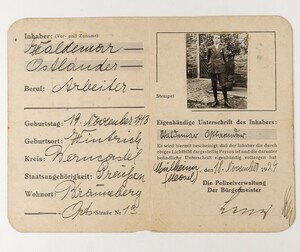 Inhaber: (Vor- und Zuname)
Waldemar
Ostländer
Beruf: Arbeiter
Geburtstag: 19. November 1913
Geburtsort: Wintrich
Kreis: Berncastel
Staatsangehörigkeit: Preußen
Wohnort
Straße Nr.
Stempel
Eigenhändige Unterschrift des Inhabers:
Waldemar Ostländer
Es wird hiermit bescheinigt, daß der Inhaber die durch
obiges Lichtbild dargestellte Person ist und die darunter
befindliche Unterschrift eigenhändig vollzogen hat
Mülheim, den 11. November 1929
(Mosel)
Die Polizeiverwaltung
Der Bürgermeister